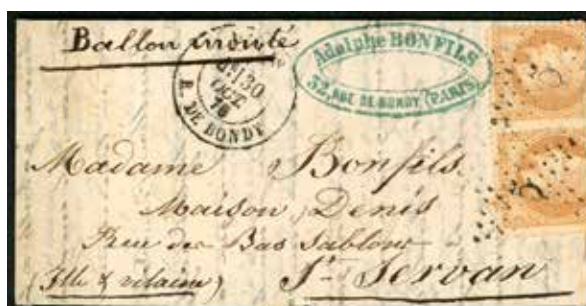 Ballon monté
Adolphe BONFILS
32, RUE DE BONDY (PARIS)
30
OCT
70
R. DE BONDY
Madame Bonfils
Maison Denis
Rue des Bas Sablons
(Ille & vilaine) St Servan